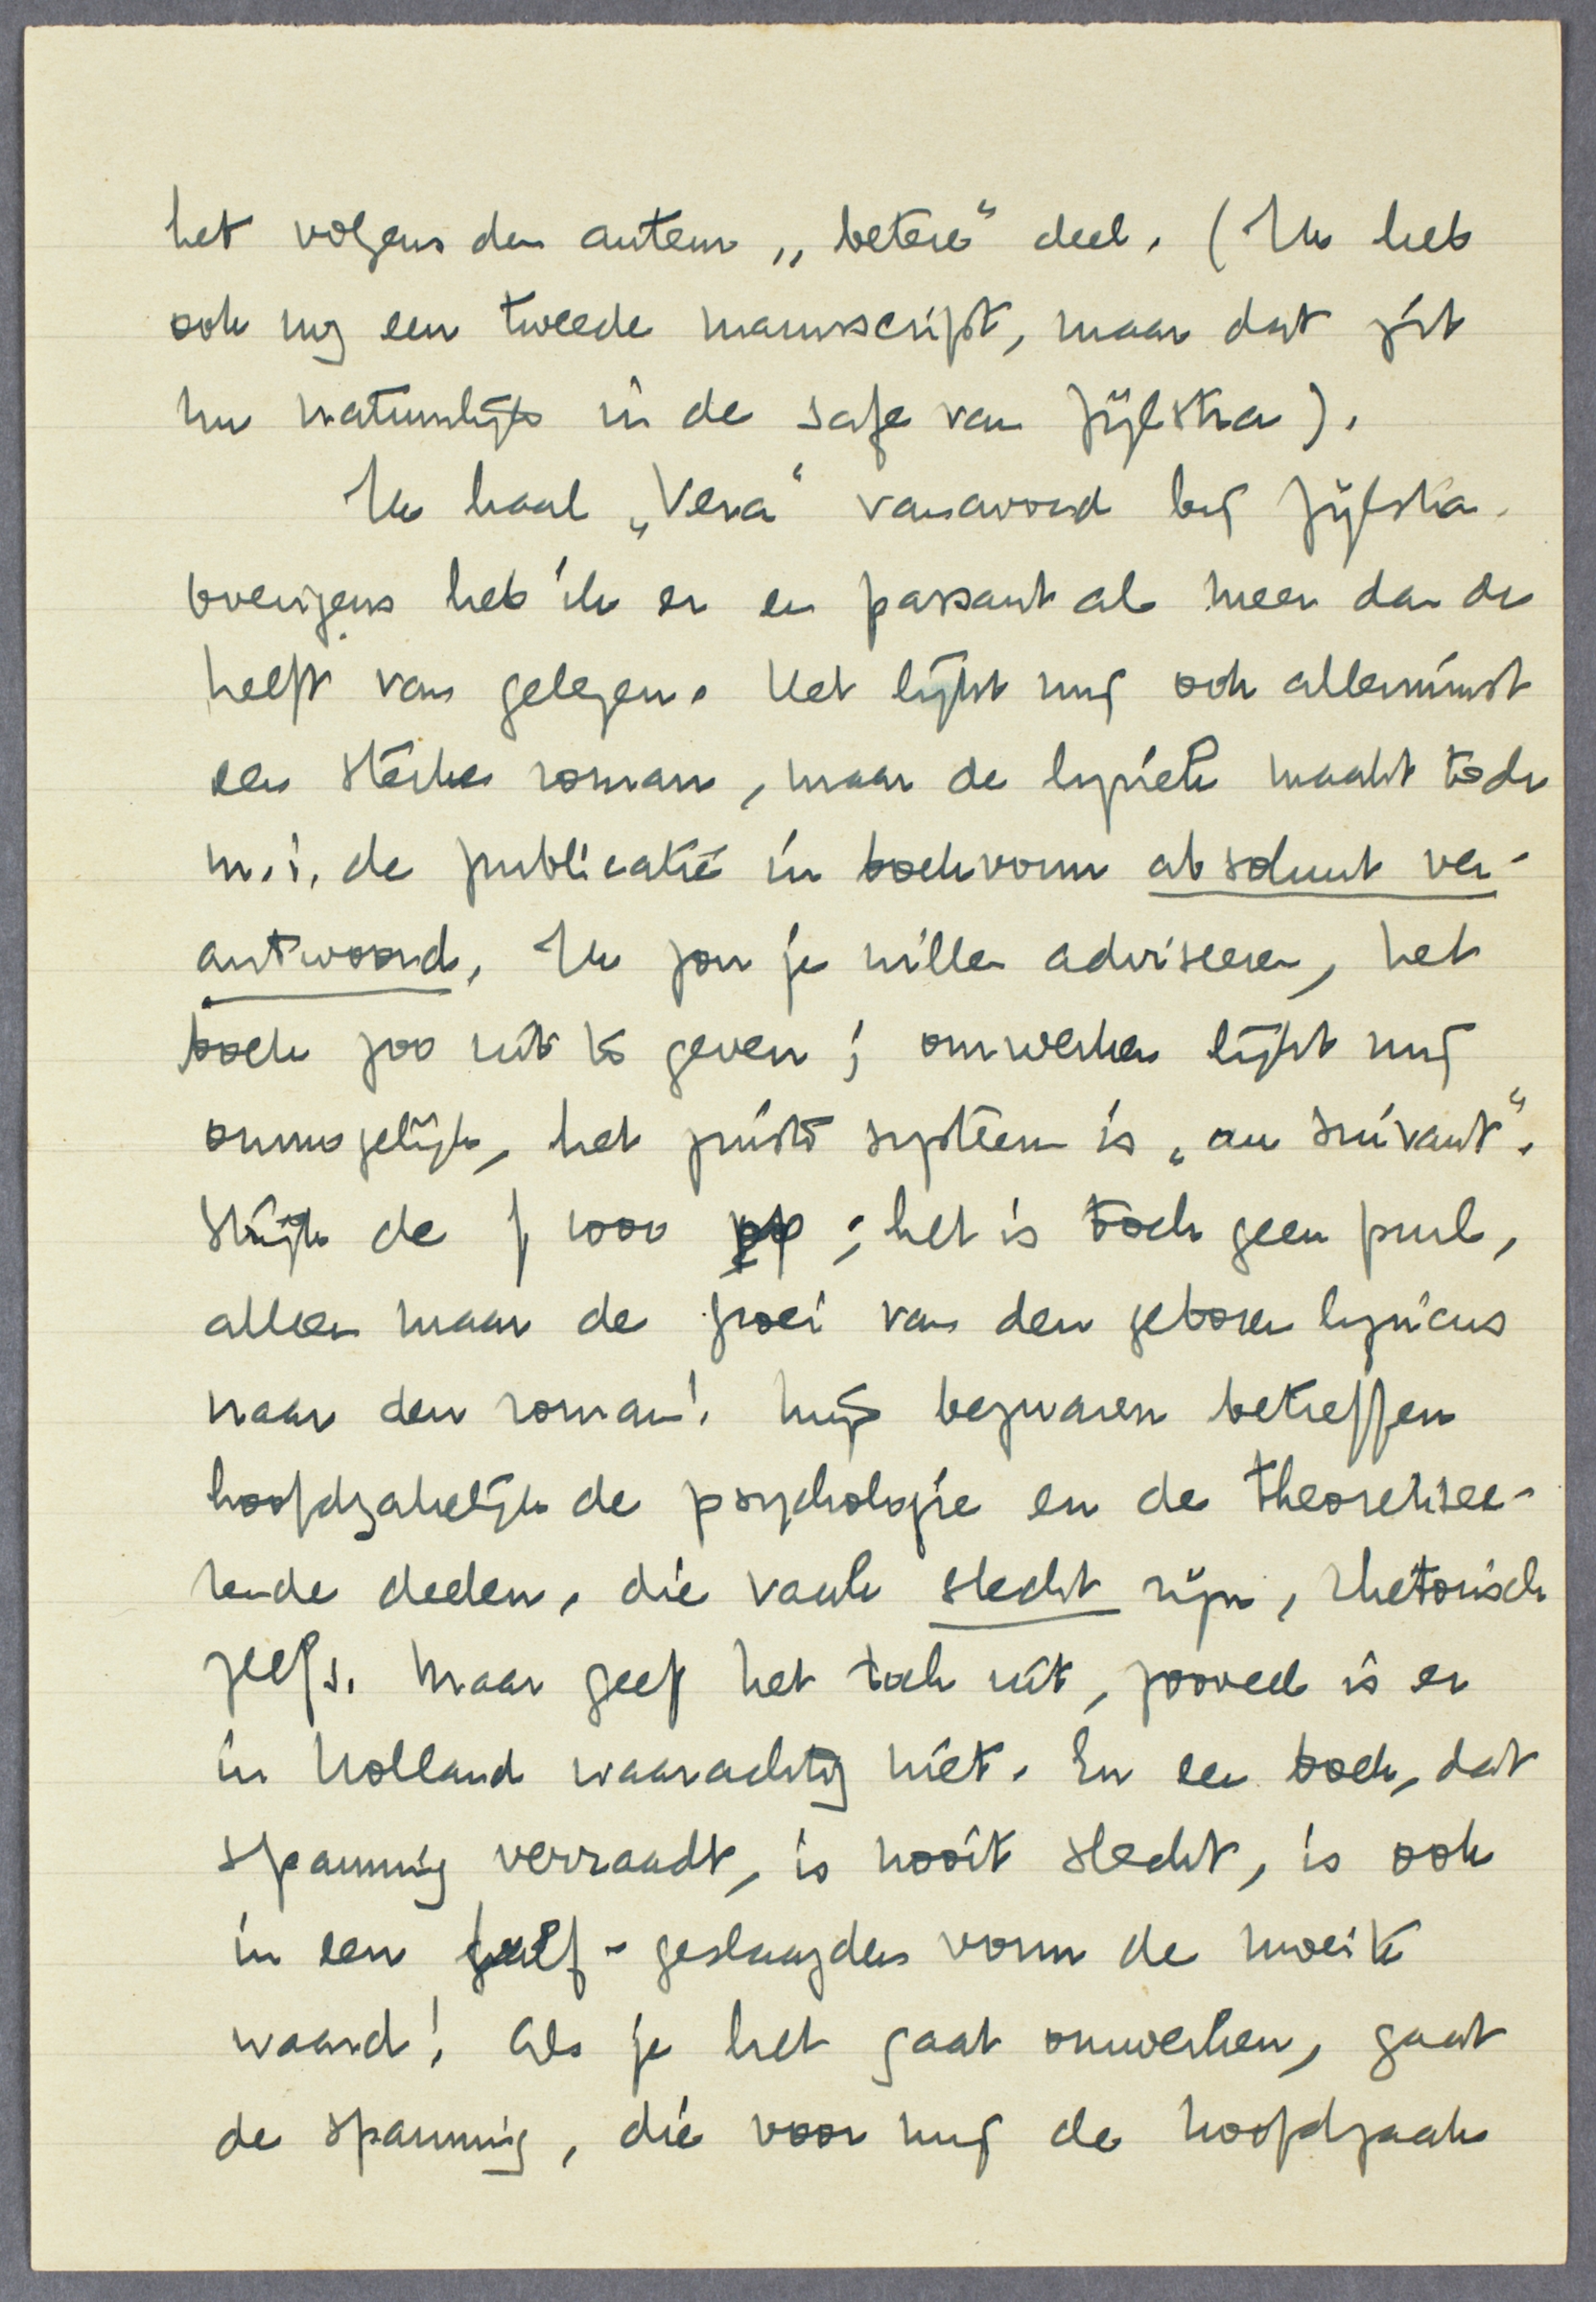 het volgens den auteur „betere” deel. (Ik heb
ook nog een tweede manuscript, maar dat zit
nu natuurlijk in de safe van Zijlstra).
Ik haal „Vera” vanavond bij Zijlstra.
Overigens heb ik er en passant al meer dan de
helft van gelezen. Het lijkt mij ook allerminst
een sterke roman, maar de lyriek maakt toch
m.i. de publicatie in boekvorm absoluut ver-
antwoord. Ik zou je willen adviseeren, het
boek zoo uit te geven; omwerken lijkt mij
onmogelijk, het juiste systeem is „au suivant”.
Strijk de f 1000 op; het is toch geen prul,
alleen maar de groei van den geboren lyricus
naar den roman! Mijn bezwaren betreffen
hoofdzakelijk de psychologie en de theoretisee-
rende deelen, die vaak slecht zijn, rhetorisch
zelfs. Maar geef het toch uit, zooveel is er
in Holland waarachtig niet. En een boek, dat
spanning verraadt, is nooit slecht, is ook
in een half-geslaagden vorm de moeite
waard! Als je het gaat omwerken, gaat
de spanning, die voor mij de hoofdzaak